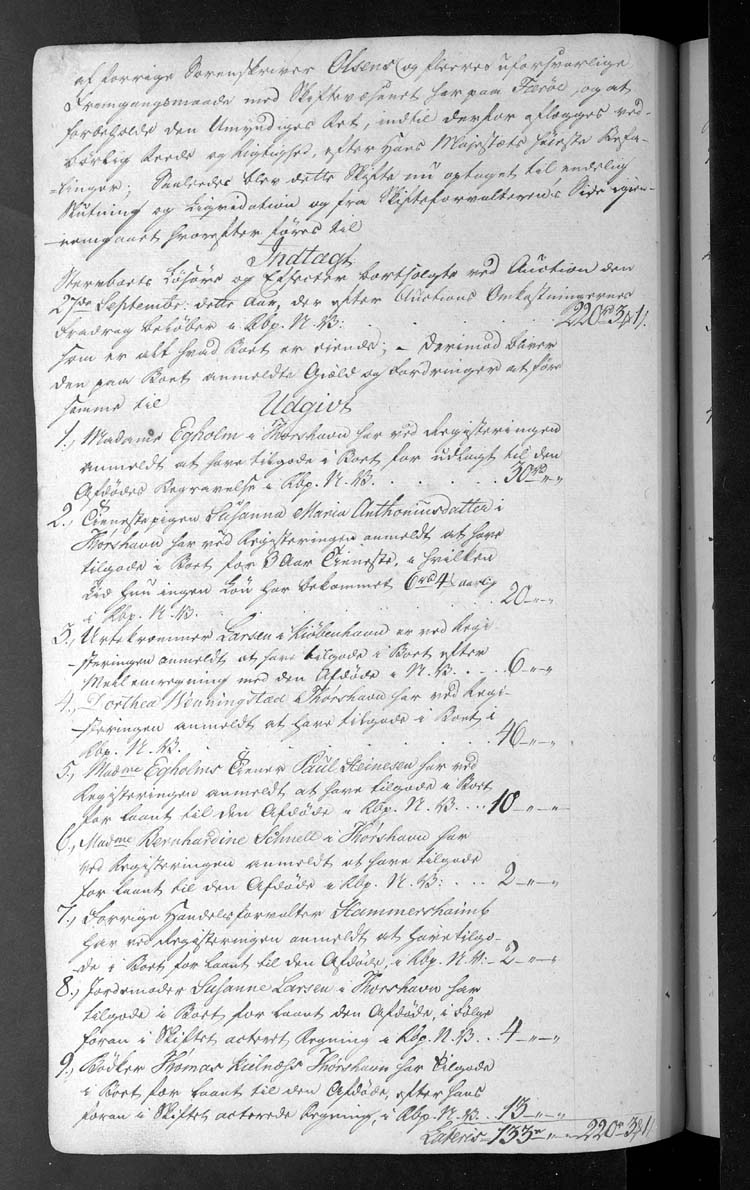 af forrige Sorenskriver Olsens (og fleeres uforsvarlige
Fremgangsmaade med Skiftevæsenet her paa Færøe, og at
forbeholde den Umyndiges Ret, indtil derfor aflegges ved-
børlig Rede og Rigtighed, efter Hans Majestæts høieste Befa-
=linger; Saaledes blev dette Skifte nu optaget til endelig
Slutning og Liqvidation og fra Skifteforvalterens Side igien-
-nemgaaet hvorefter føres til
Indtægt
Sterboets Løsøre og Effecter bortsolgte ved Auction den
27de Septembr: dette Aar, der efter Auctions Omkostningernes
Fradrag beløber i Rbp. N. V: 220 rd 3 ß 1/.
som er alt hvad Boet er eiende; – derimod bliver
den paa Boet anmeldte Gield og Fordringer at føre
samme til Udgivt
1., Madame Egholm i Thorshavn har ved Registeringen
anmeldt at have tilgode i Boet for udlagt til den
Afdødes Begravelse i Rbp. N. V. 30 rd „ „
2., Tienestepigen Susanna Maria Anthoniusdatter i
Thorshavn har ved Registeringen anmeldt at have
tilgode i Boet for 3 Aar Tieneste, i hvilken
Tid hun ingen Løn har bekommet 6 rd 4 aarlig
i Rbp. N. V. 20 – „ – „
3., Urtekræmmer Larsen i Kiøbenhavn er ved Regi-
-steringen anmeldt at have tilgode i Boet efter
Mellemregning med den Afdøde i N. V. 6 – „ – „
4., Dorthea Wenningstad i Thorshavn har ved Regi-
-steringen anmeldt at have tilgode i Boet i
Rbp. N. V. 46 – „ – „
5., Madme Egholms Tiener Paul Heinesen har ved
Registeringen anmeldt at have tilgode i Boet
for Laant til den Afdøde i Rbp. N. V. 10 – „ – „
6., Madme Bernhardine Schnell i Thorshavn har
ved Registeringen anmeldt at have tilgode
for Laant til den Afdøde i Rbp. N. V: 2 – „ – „
7., Forrige Handelsforvalter Hammershaimb
har ved Registeringen anmeldt at have tilgo-
-de i Boet for Laant til den Afdøde, i Rbp. N. V: 2 – „ – „
8., Jordemoder Susanne Larsen i Thorshavn har
tilgode i Boet for Laant den Afdøde, i Følge
foran i Skiftet acteret Regning i Rbp. N. V. 4 – „ – „
9., Bødker Thomas Thorshavn har tilgode
i Boet for Laant til den Afdøde, efter hans
foran i Skiftet acterede Regning, i Rbp. N. V. 13 – „ – „
Lateris – 133 rd „ – „ 220 rd 3 ß 1/.